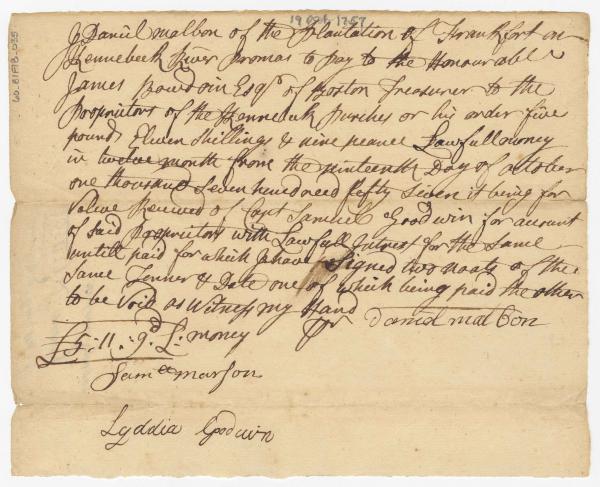 19 Oct 1757
60.B1F13.055
I Daniel malbon of the Plantation of Frankfort on
Kennebeck River promas to pay to the Honourable
James Bowdoin Esqr of Boston Treasurer to the
Propriettors of the Kennebeck Purches or his order five
pound Eleven Shillings & nine peance Lawfull money
in twelve month from the ninteenth Day of october
one thousand Seven hundreed fifty Seven it being for
value Received of Capt Samuel Goodwin for account
of said Propriettors with Lawfull Intrest for the Same
untill paid for which I have Signed two noats of the
Same Tenner & Date one of which being paid the other
to be void as Witness my Hand
£5:11:9d L: money
Daniel malbon
Samll marson
Lyddia Goodwin